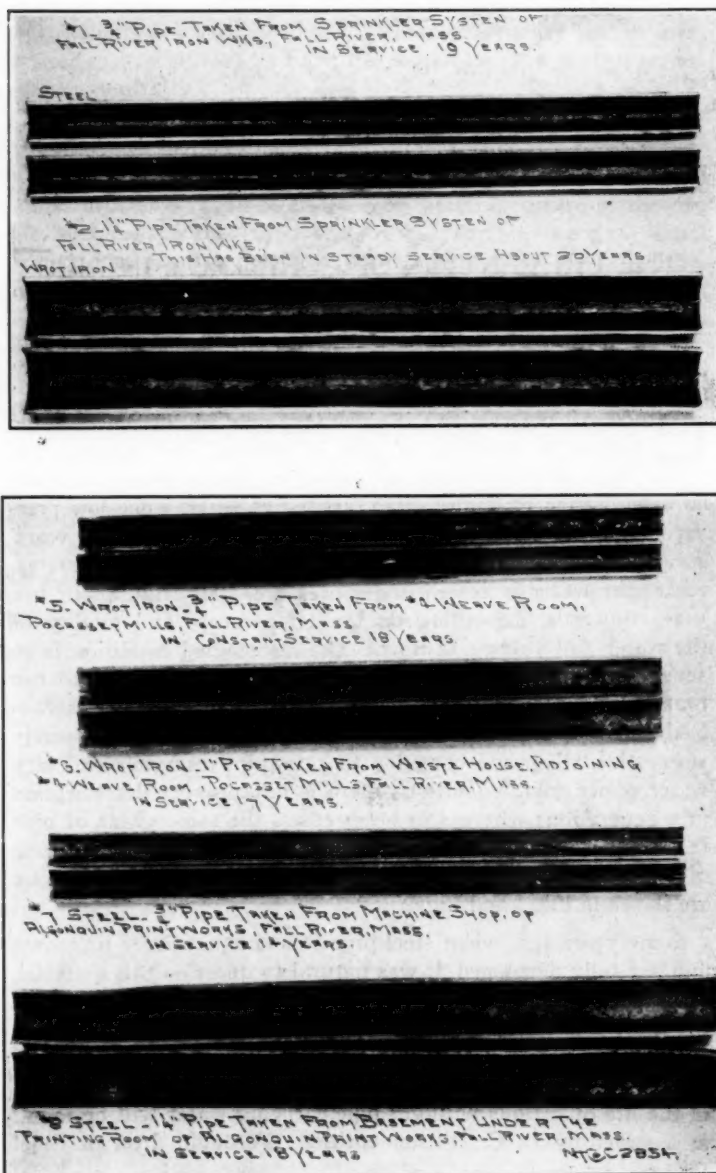 #1- 3/4" PIPE, TAKEN FROM SPRINKLER SYSTEN OF
FALL RIVER IRON WKS., FALL RIVER, MASS.
IN SERVICE 19 YEARS.
STEEL
#2-1 1/4" PIPE TAKEN FROM SPRINKLER SYSTEN OF
FALL RIVER IRON WKS.,
THIS HAS BEEN IN STEADY SERVICE ABOUT 20 YEARS
WROT IRON
#5- WROT IRON- 3/4" PIPE TAKEN FROM #4 WEAVE ROOM,
POCASSET MILLS, FALL RIVER, MASS.
IN CONSTANT SERVICE 18 YEARS.
#6. WROT IRON-1" PIPE TAKEN FROM WASTE HOUSE, ADJOINING
#4 WEAVE ROOM POCASSET MILLS, FALL RIVER, MASS.
IN SERVICE 17 YEARS.
#7 STEEL- 3/4" PIPE TAKEN FROM MACHINE SHOP, OF
ALGONQUIN PRINT WORKS, FALL RIVER, MASS.
IN SERVICE 14 YEARS.
#8 STEEL-1 1/4" PIPE TAKEN FROM BASEMENT UNDER THE
PRINTING ROOM OF ALGONQUIN PRINT WORKS, FALL RIVER, MASS.
IN SERVICE 18 YEARS